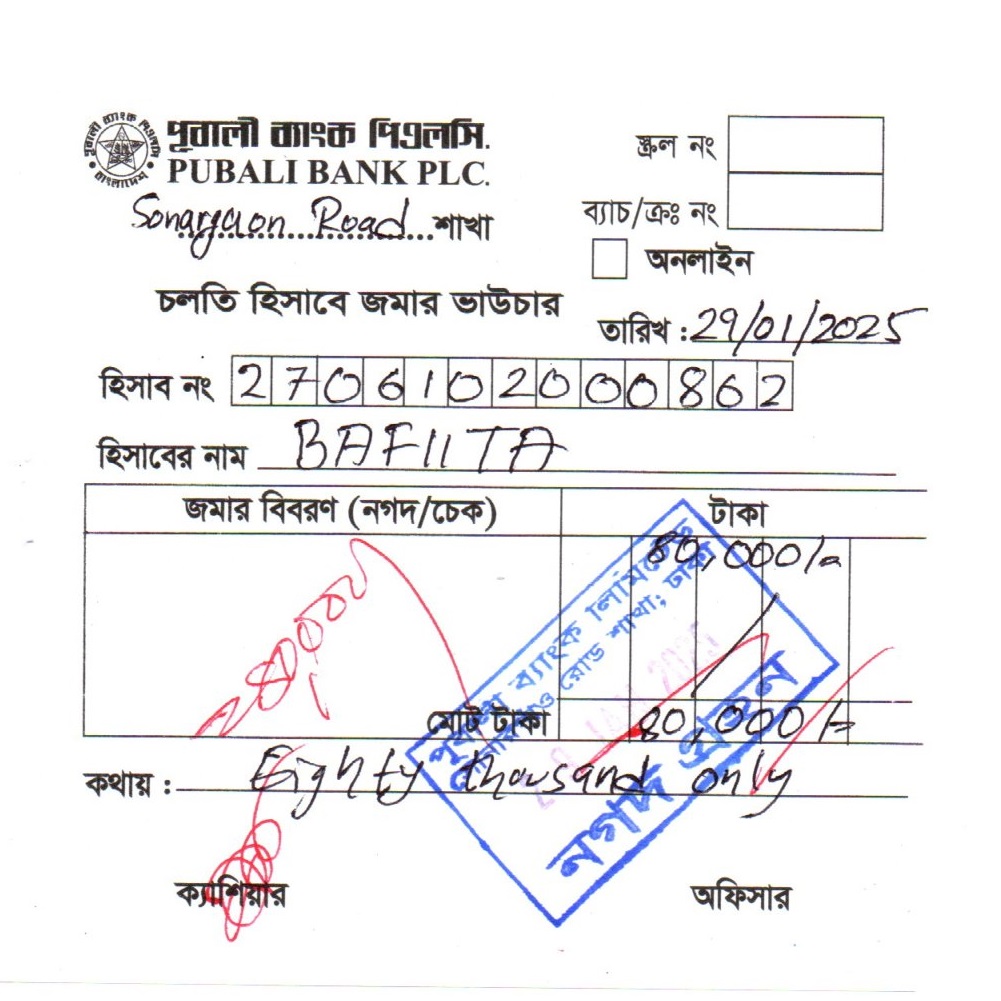 পূবালী ব্যাংক পিএলসি.
PUBALI BANK PLC.
পূবালী ব্যাংক পিএলসি
বাংলাদেশ
Sonargaon Road শাখা
স্ক্রল নং
ব্যাচ/ক্রঃ নং
অনলাইন
চলতি হিসাবে জমার ভাউচার
তারিখ : 29/01/2025
হিসাব নং 2706102000862
হিসাবের নাম BAFIITA
জমার বিবরণ (নগদ/চেক) টাকা
80,000/=
মোট টাকা 80,000/=
কথায় : Eighty thousand only
পূবালী ব্যাংক লিমিটেড
সোনারগাঁও রোড শাখা; ঢাকা
নগদ গ্রহন
ক্যাশিয়ার অফিসার